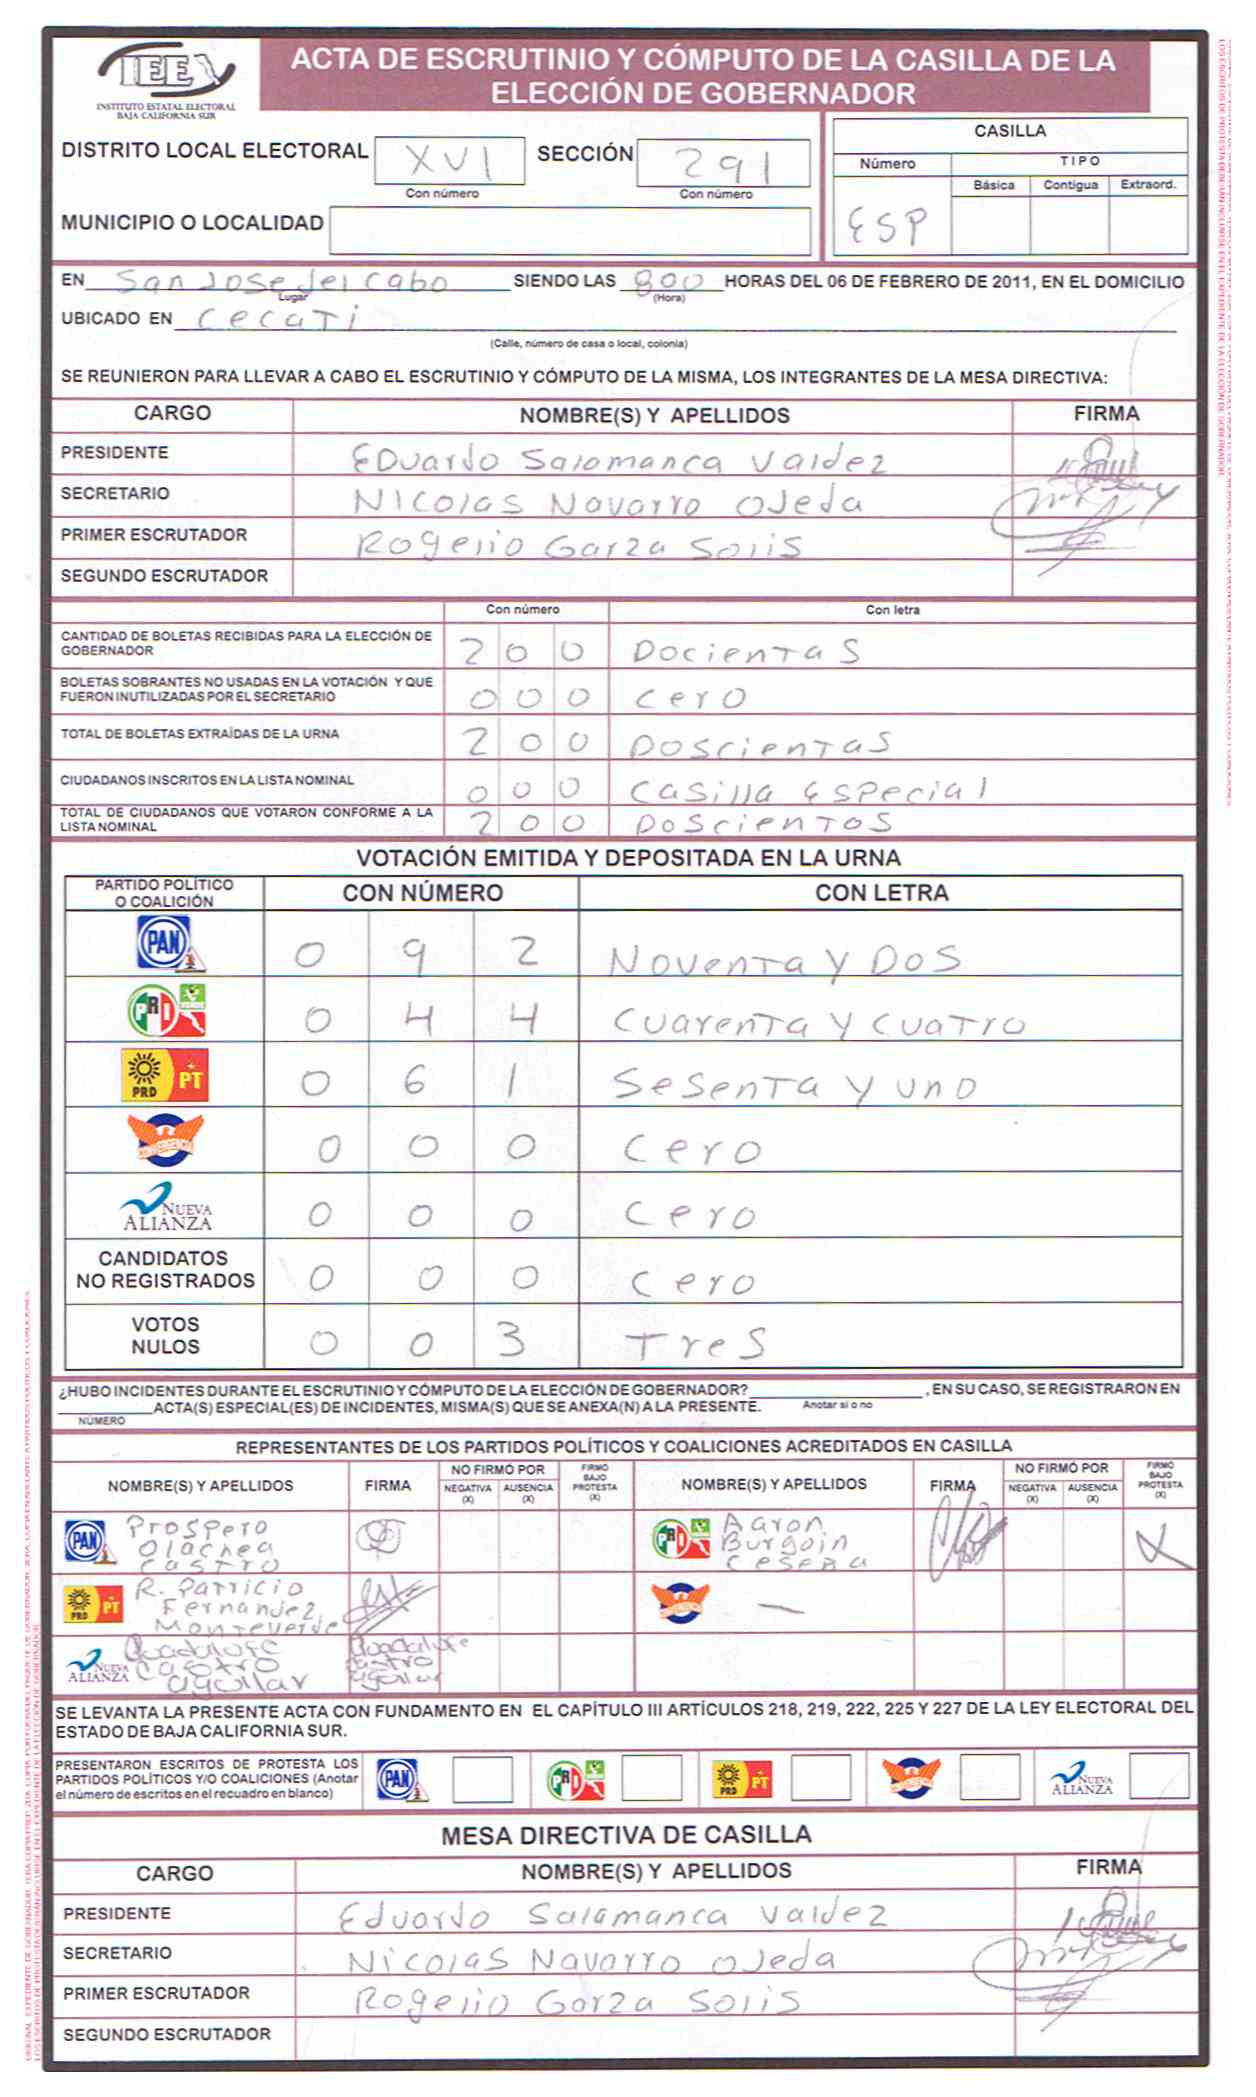 IEE
INSTITUTO ESTATAL ELECTORAL
BAJA CALIFORNIA SUR
ACTA DE ESCRUTINIO Y CÓMPUTO DE LA CASILLA DE LA
ELECCIÓN DE GOBERNADOR
DISTRITO LOCAL ELECTORAL XVI SECCIÓN 291
Con número Con número
MUNICIPIO O LOCALIDAD
CASILLA
Número TIPO
Básica Contigua Extraord.
ESP
EN San Jose del cabo SIENDO LAS 800 HORAS DEL 06 DE FEBRERO DE 2011, EN EL DOMICILIO
Lugar (Hora)
UBICADO EN CECATI
(Calle, número de casa o local, colonia)
SE REUNIERON PARA LLEVAR A CABO EL ESCRUTINIO Y CÓMPUTO DE LA MISMA, LOS INTEGRANTES DE LA MESA DIRECTIVA:
CARGO NOMBRE(S) Y APELLIDOS FIRMA
PRESIDENTE EDuardo Salomanca Valdez
SECRETARIO NICOlas Navarro OJeda
PRIMER ESCRUTADOR Rogelio Garza Solis
SEGUNDO ESCRUTADOR
Con número Con letra
CANTIDAD DE BOLETAS RECIBIDAS PARA LA ELECCIÓN DE
GOBERNADOR 2 0 0 DocienTaS
BOLETAS SOBRANTES NO USADAS EN LA VOTACIÓN Y QUE
FUERON INUTILIZADAS POR EL SECRETARIO 0 0 0 cero
TOTAL DE BOLETAS EXTRAÍDAS DE LA URNA 2 0 0 DOScienTaS
CIUDADANOS INSCRITOS EN LA LISTA NOMINAL 0 0 0 casilla especial
TOTAL DE CIUDADANOS QUE VOTARON CONFORME A LA
LISTA NOMINAL 2 0 0 DOScienTOS
VOTACIÓN EMITIDA Y DEPOSITADA EN LA URNA
PARTIDO POLÍTICO
O COALICIÓN CON NÚMERO CON LETRA
PAN 0 9 2 NovenTa Y DOS
PRI VERDE 0 4 4 cuarenTa Y cuaTro
PRD PT 0 6 1 SeSenTa Y uno
CONVERGENCIA 0 0 0 cero
NUEVA
ALIANZA 0 0 0 cero
CANDIDATOS
NO REGISTRADOS 0 0 0 cero
VOTOS
NULOS 0 0 3 TreS
¿HUBO INCIDENTES DURANTE EL ESCRUTINIO Y CÓMPUTO DE LA ELECCIÓN DE GOBERNADOR? , EN SU CASO, SE REGISTRARON EN
ACTA(S) ESPECIAL(ES) DE INCIDENTES, MISMA(S) QUE SE ANEXA(N) A LA PRESENTE. Anotar si o no
NÚMERO
REPRESENTANTES DE LOS PARTIDOS POLÍTICOS Y COALICIONES ACREDITADOS EN CASILLA
NOMBRE(S) Y APELLIDOS FIRMA NO FIRMÓ POR NEGATIVA (X) AUSENCIA (X) FIRMÓ BAJO PROTESTA (X) NOMBRE(S) Y APELLIDOS FIRMA NO FIRMÓ POR NEGATIVA (X) AUSENCIA (X) FIRMÓ BAJO PROTESTA (X)
PAN Prospero
Olachea
CASTRO
PRI Aaron
Burgoin
Ceseña X
PRD PT R. Patricio
Fernandez
Monteverde
CONVERGENCIA —
NUEVA
ALIANZA Guadalupe
Castro
aguilar
Guadalupe
castro
aguilar
SE LEVANTA LA PRESENTE ACTA CON FUNDAMENTO EN EL CAPÍTULO III ARTÍCULOS 218, 219, 222, 225 Y 227 DE LA LEY ELECTORAL DEL
ESTADO DE BAJA CALIFORNIA SUR.
PRESENTARON ESCRITOS DE PROTESTA LOS
PARTIDOS POLÍTICOS Y/O COALICIONES (Anotar
el número de escritos en el recuadro en blanco)
PAN PRI PRD PT CONVERGENCIA NUEVA ALIANZA
MESA DIRECTIVA DE CASILLA
CARGO NOMBRE(S) Y APELLIDOS FIRMA
PRESIDENTE Eduardo Salamanca Valdez
SECRETARIO Nicolas Navarro OJeda
PRIMER ESCRUTADOR Rogelio Garza Solis
SEGUNDO ESCRUTADOR